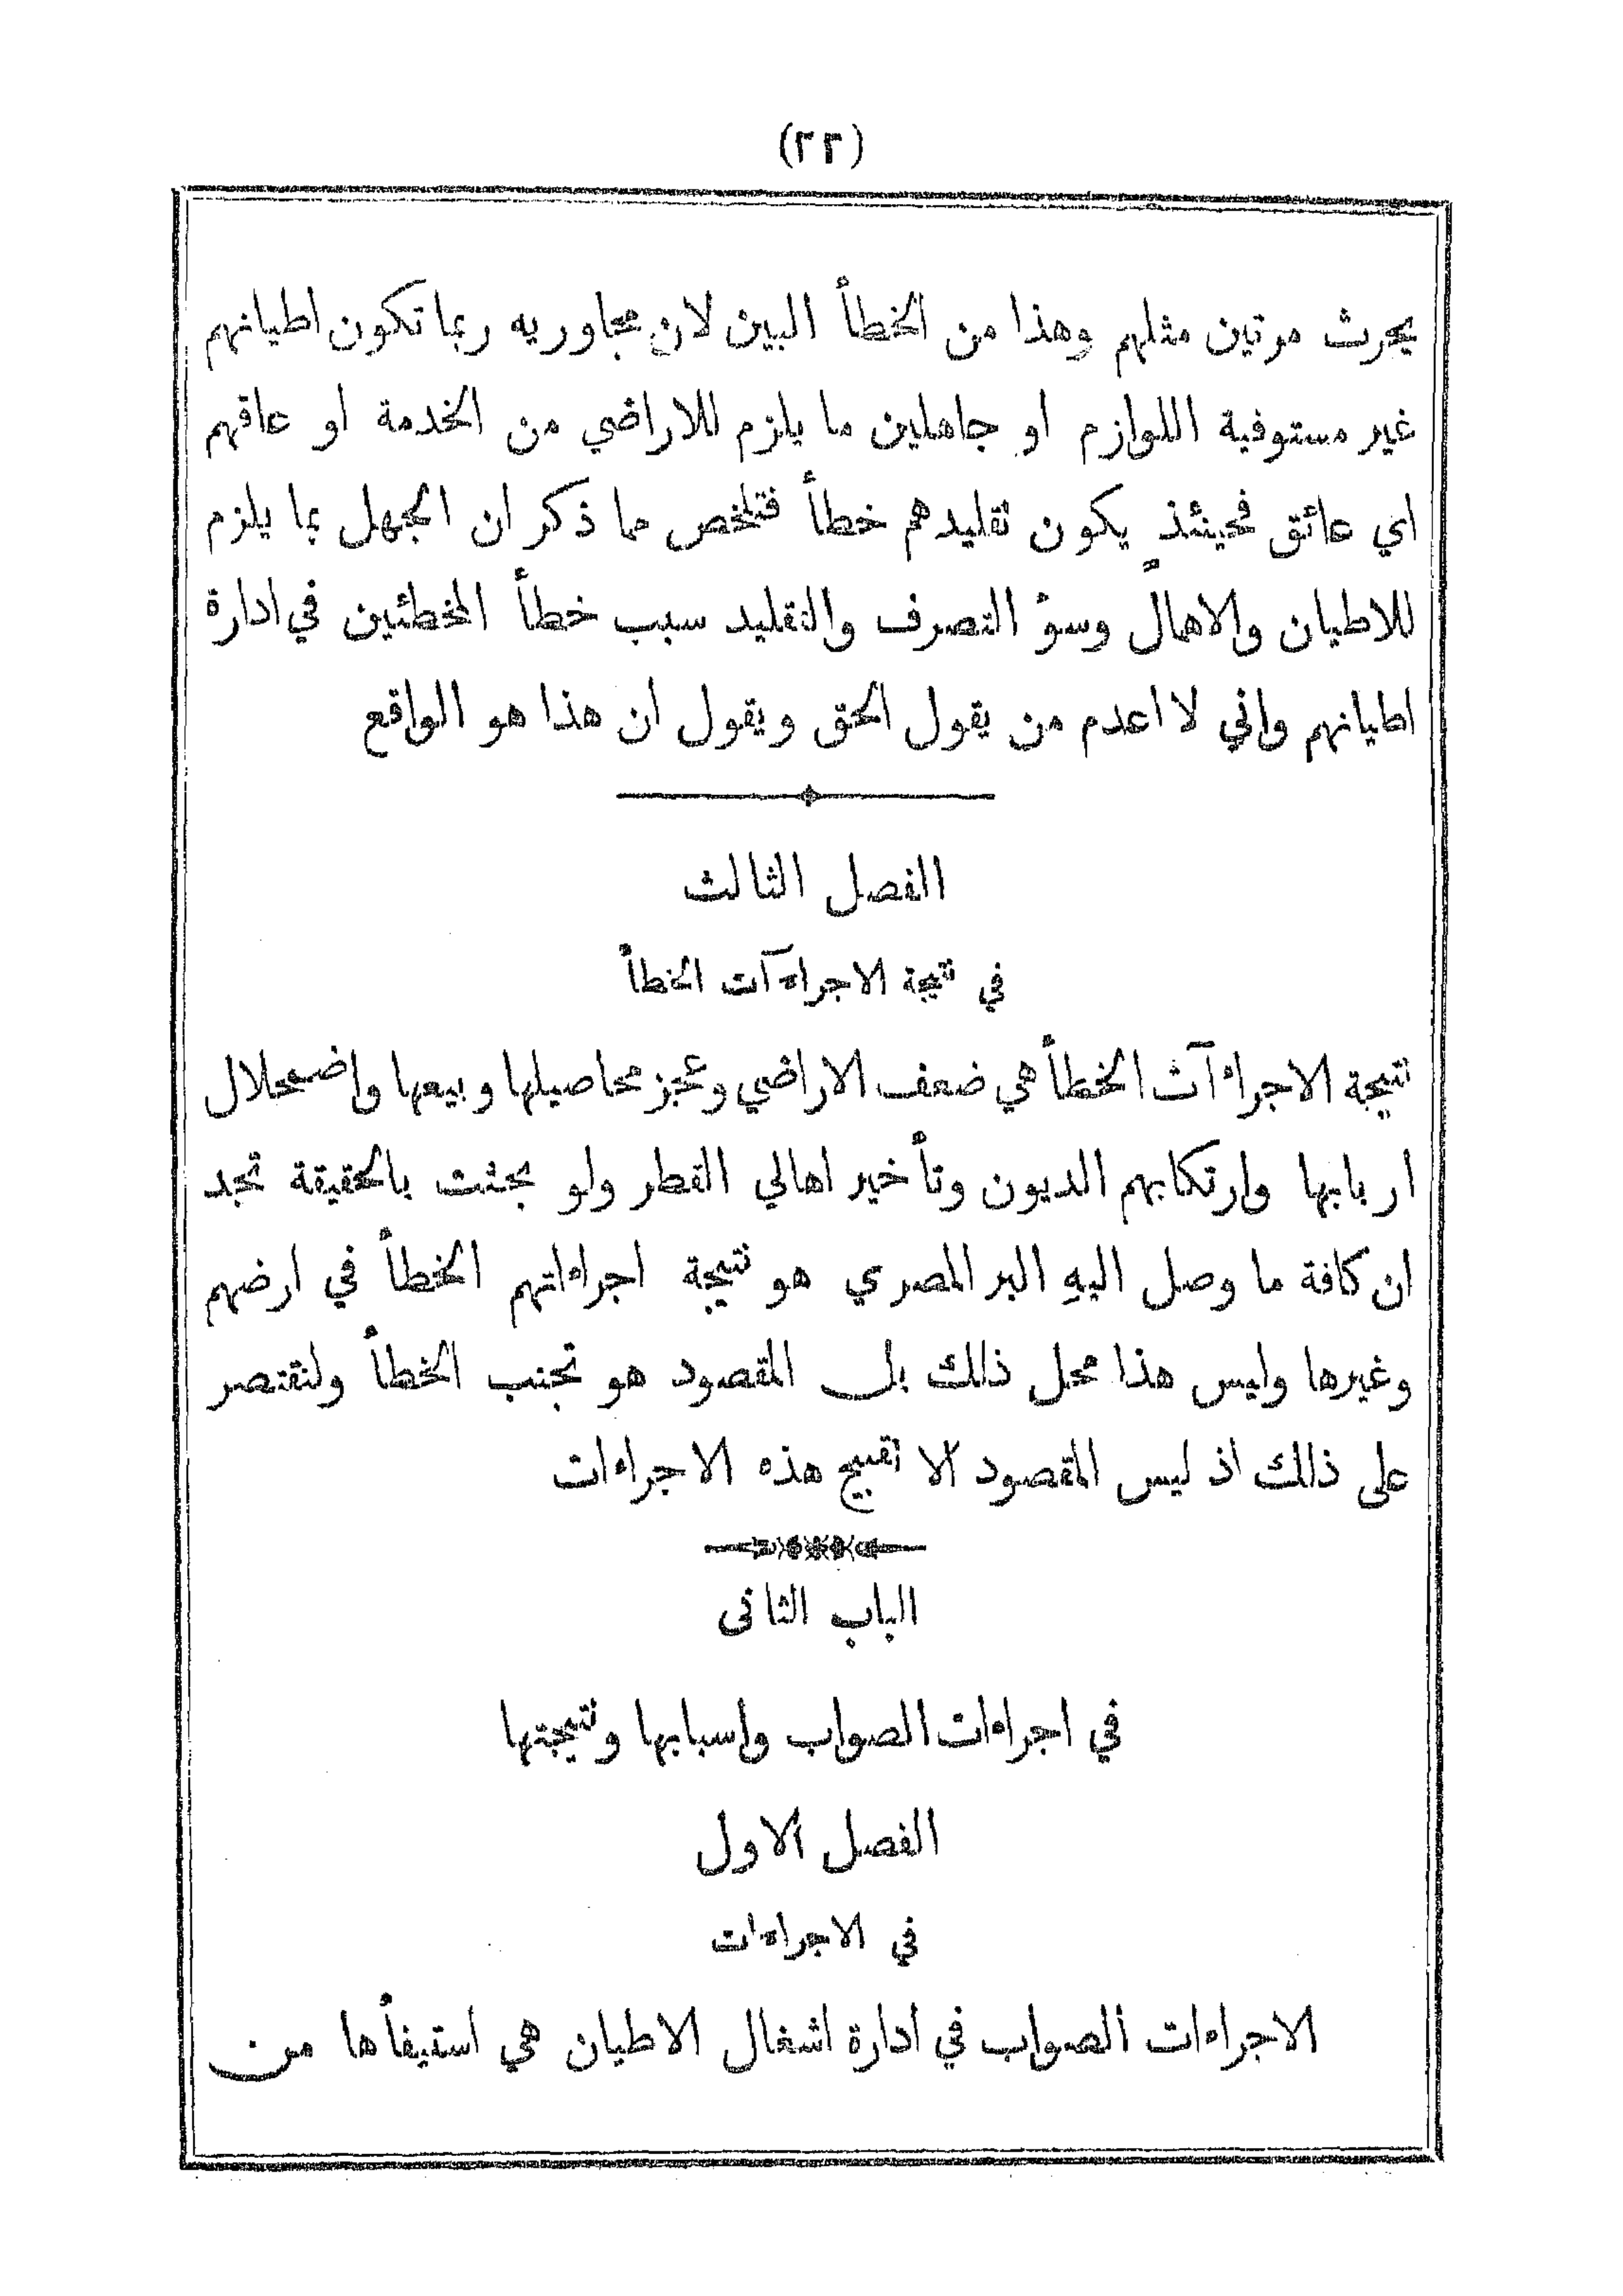 (٢٣)
يحرث مرتين مثلهم وهذا من الخطأ البين لان مجاوريه ربما تكون اطيانهم
غير مستوفية اللوازم او جاهلين ما يلزم للاراضي من الخدمة او عاقهم
اي عائق فحينئذٍ يكون تقليدهم خطأ فتلخص مما ذكر ان الجهل بما يلزم
للاطيان والاهمال وسوٴ التصرف والتقليد سبب خطأ المخطئين في ادارة
اطيانهم واني لا اعدم من يقول الحق ويقول ان هذا هو الواقع
الفصل الثالث
في نتيجة الاجراءآت الخطأ
نتيجة الاجراءآت الخطأ هي ضعف الاراضي وعجز محاصيلها وبيعها واضمحلال
اربابها وارتكابهم الديون وتأخير اهالي القطر ولو بحثت بالحقيقة تجد
ان كافة ما وصل اليهِ البر المصري هو نتيجة اجراءاتهم الخطأ في ارضهم
وغيرها وليس هذا محل ذلك بل المقصود هو تجنب الخطأ ولنقتصر
على ذلك اذ ليس المقصود الا تقبيح هذه الاجراءات
الباب الثانى
في اجراءات الصواب واسبابها ونتيجتها
الفصل الاول
في الاجراءات
الاجراءات الصواب في ادارة اشغال الاطيان هي استيفأها من